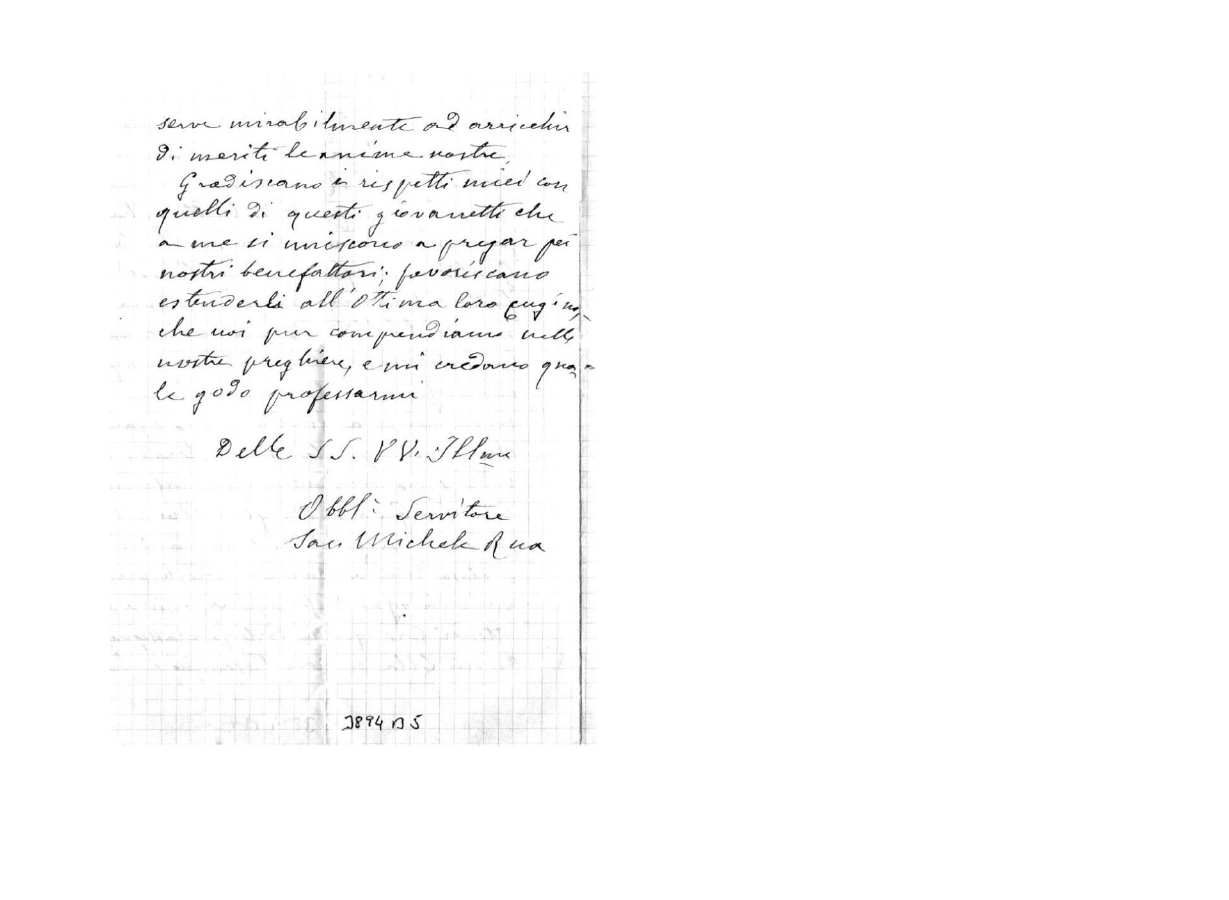 serve mirabilmente ad arricchir
di meriti le anime nostre.
Gradiscano i rispetti miei con
quelli di questi giovanetti che
a me si uniscono a pregar pei
nostri benefattori; favoriscano
estenderli all'Ottima loro Cugina,
che noi pur comprendiamo nelle
nostre preghiere, e mi credano qua-
le godo professarmi
Delle SS. VV. Ill.me
Obbl: Servitore
Sac. Michele Rua
3894 B 5